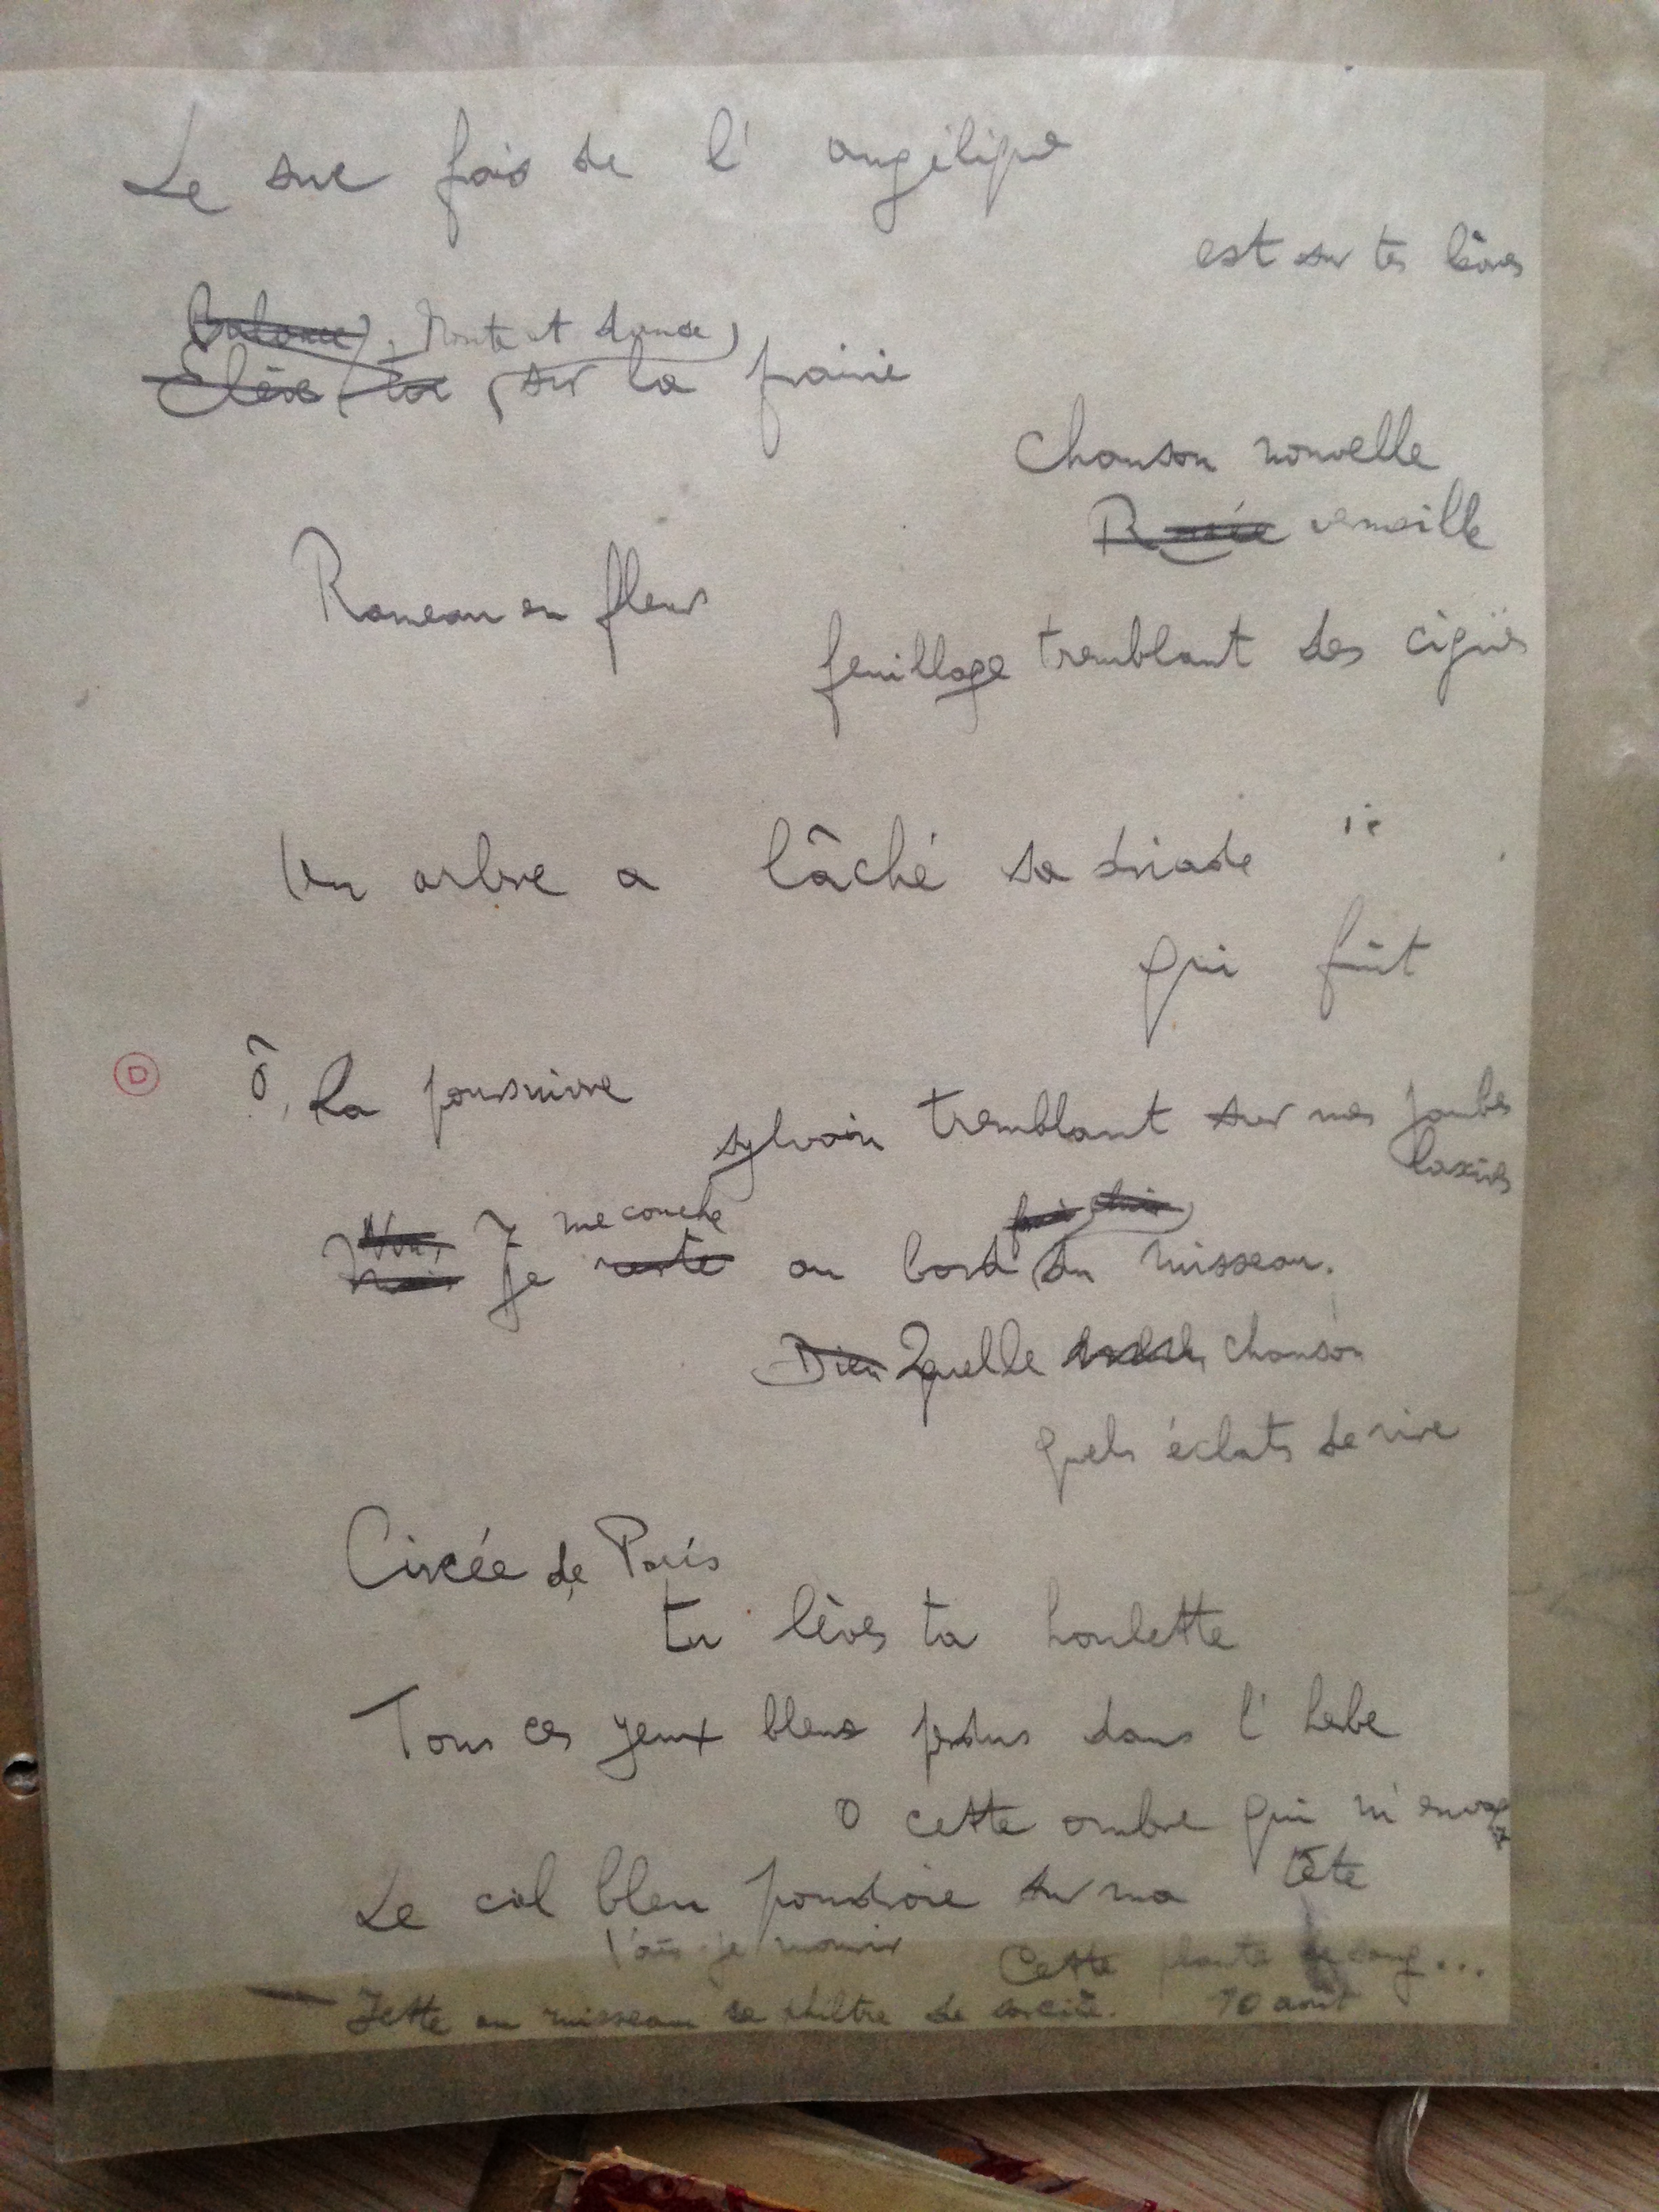 Le suc frais de l'angélique
est sur tes lèvres
Balance, Monte et danse
Élève-toi, sur la prairie
Chanson nouvelle
Rosée vermeille
Rameau en fleurs
feuillage tremblant des ciguës
Un arbre a lâché sa driade
qui fuit
D
Ô, la poursuivre
sylvain tremblant sur mes jambes
laxives
Non, me couche
Mais Je reste au bord du ruisseau.
Dieu Quelle chanson
quels éclats de rire
Circée de Paris
tu lèves ta houlette
Tous ces yeux bleus perdus dans l'herbe
O cette ombre qui m'envoya
Le ciel bleu poudroie sur ma tête
Vais-je mourir
Cette plante de sang...
Jette au ruisseau ce philtre de sorcière. 10 août